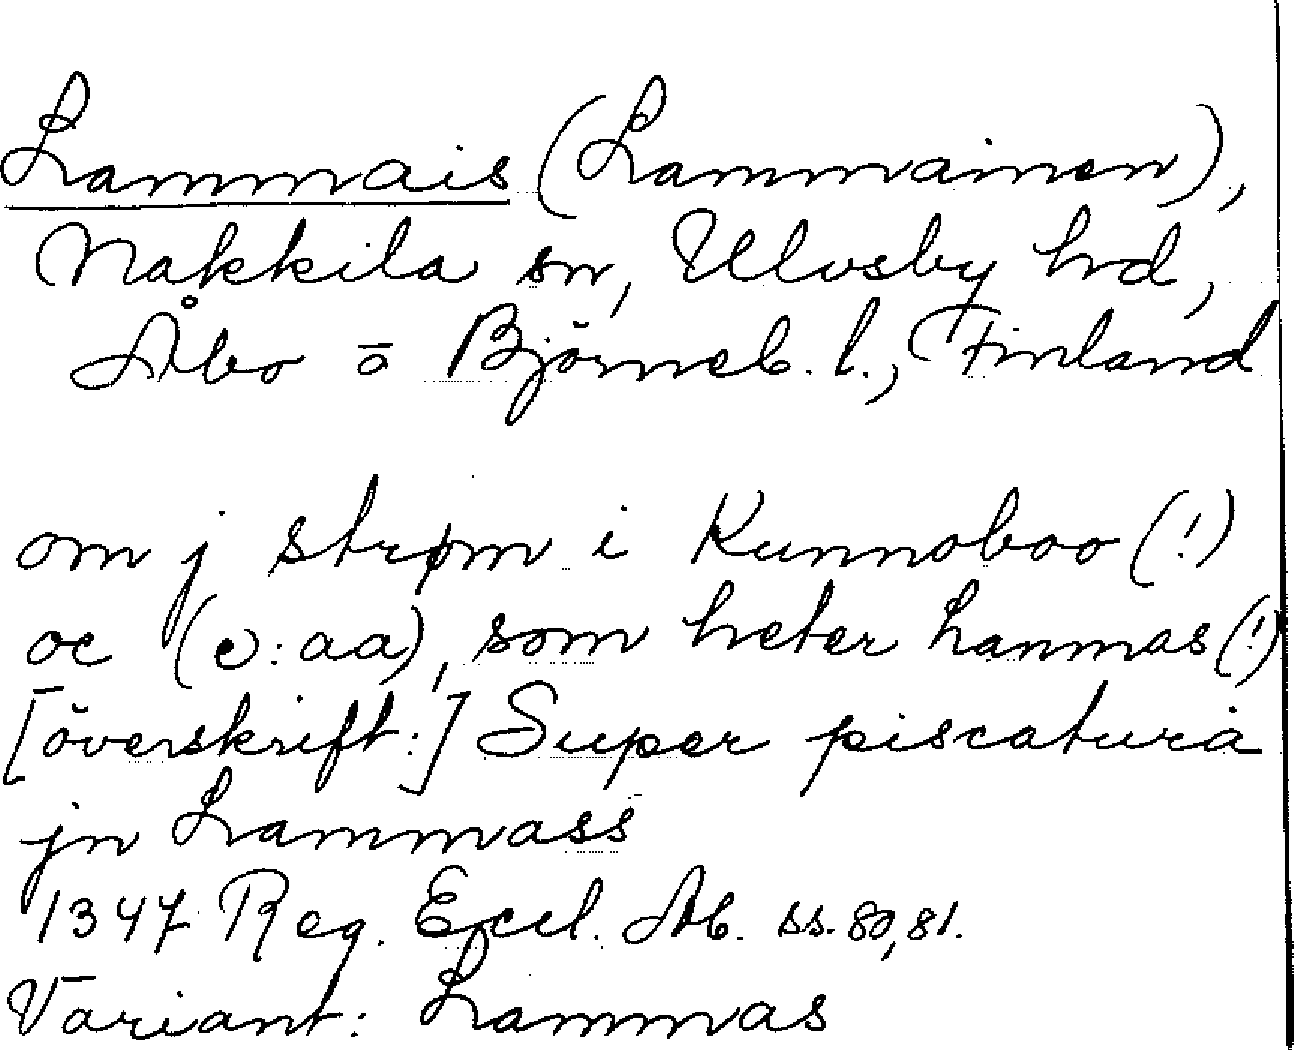 Lammais (Lammainen),
Nakkila sn, Ulvsby hd,
Åbo o Björneb. l., Finland
om j strøm i Kunnoboo (!)
oc (ɔ: aa), som heter hanmas (!)
[överskrift:] Super piscatura
jn Lammass
1347 Reg. Eccl. Ab. ss. 80, 81.
Variant: Lammas